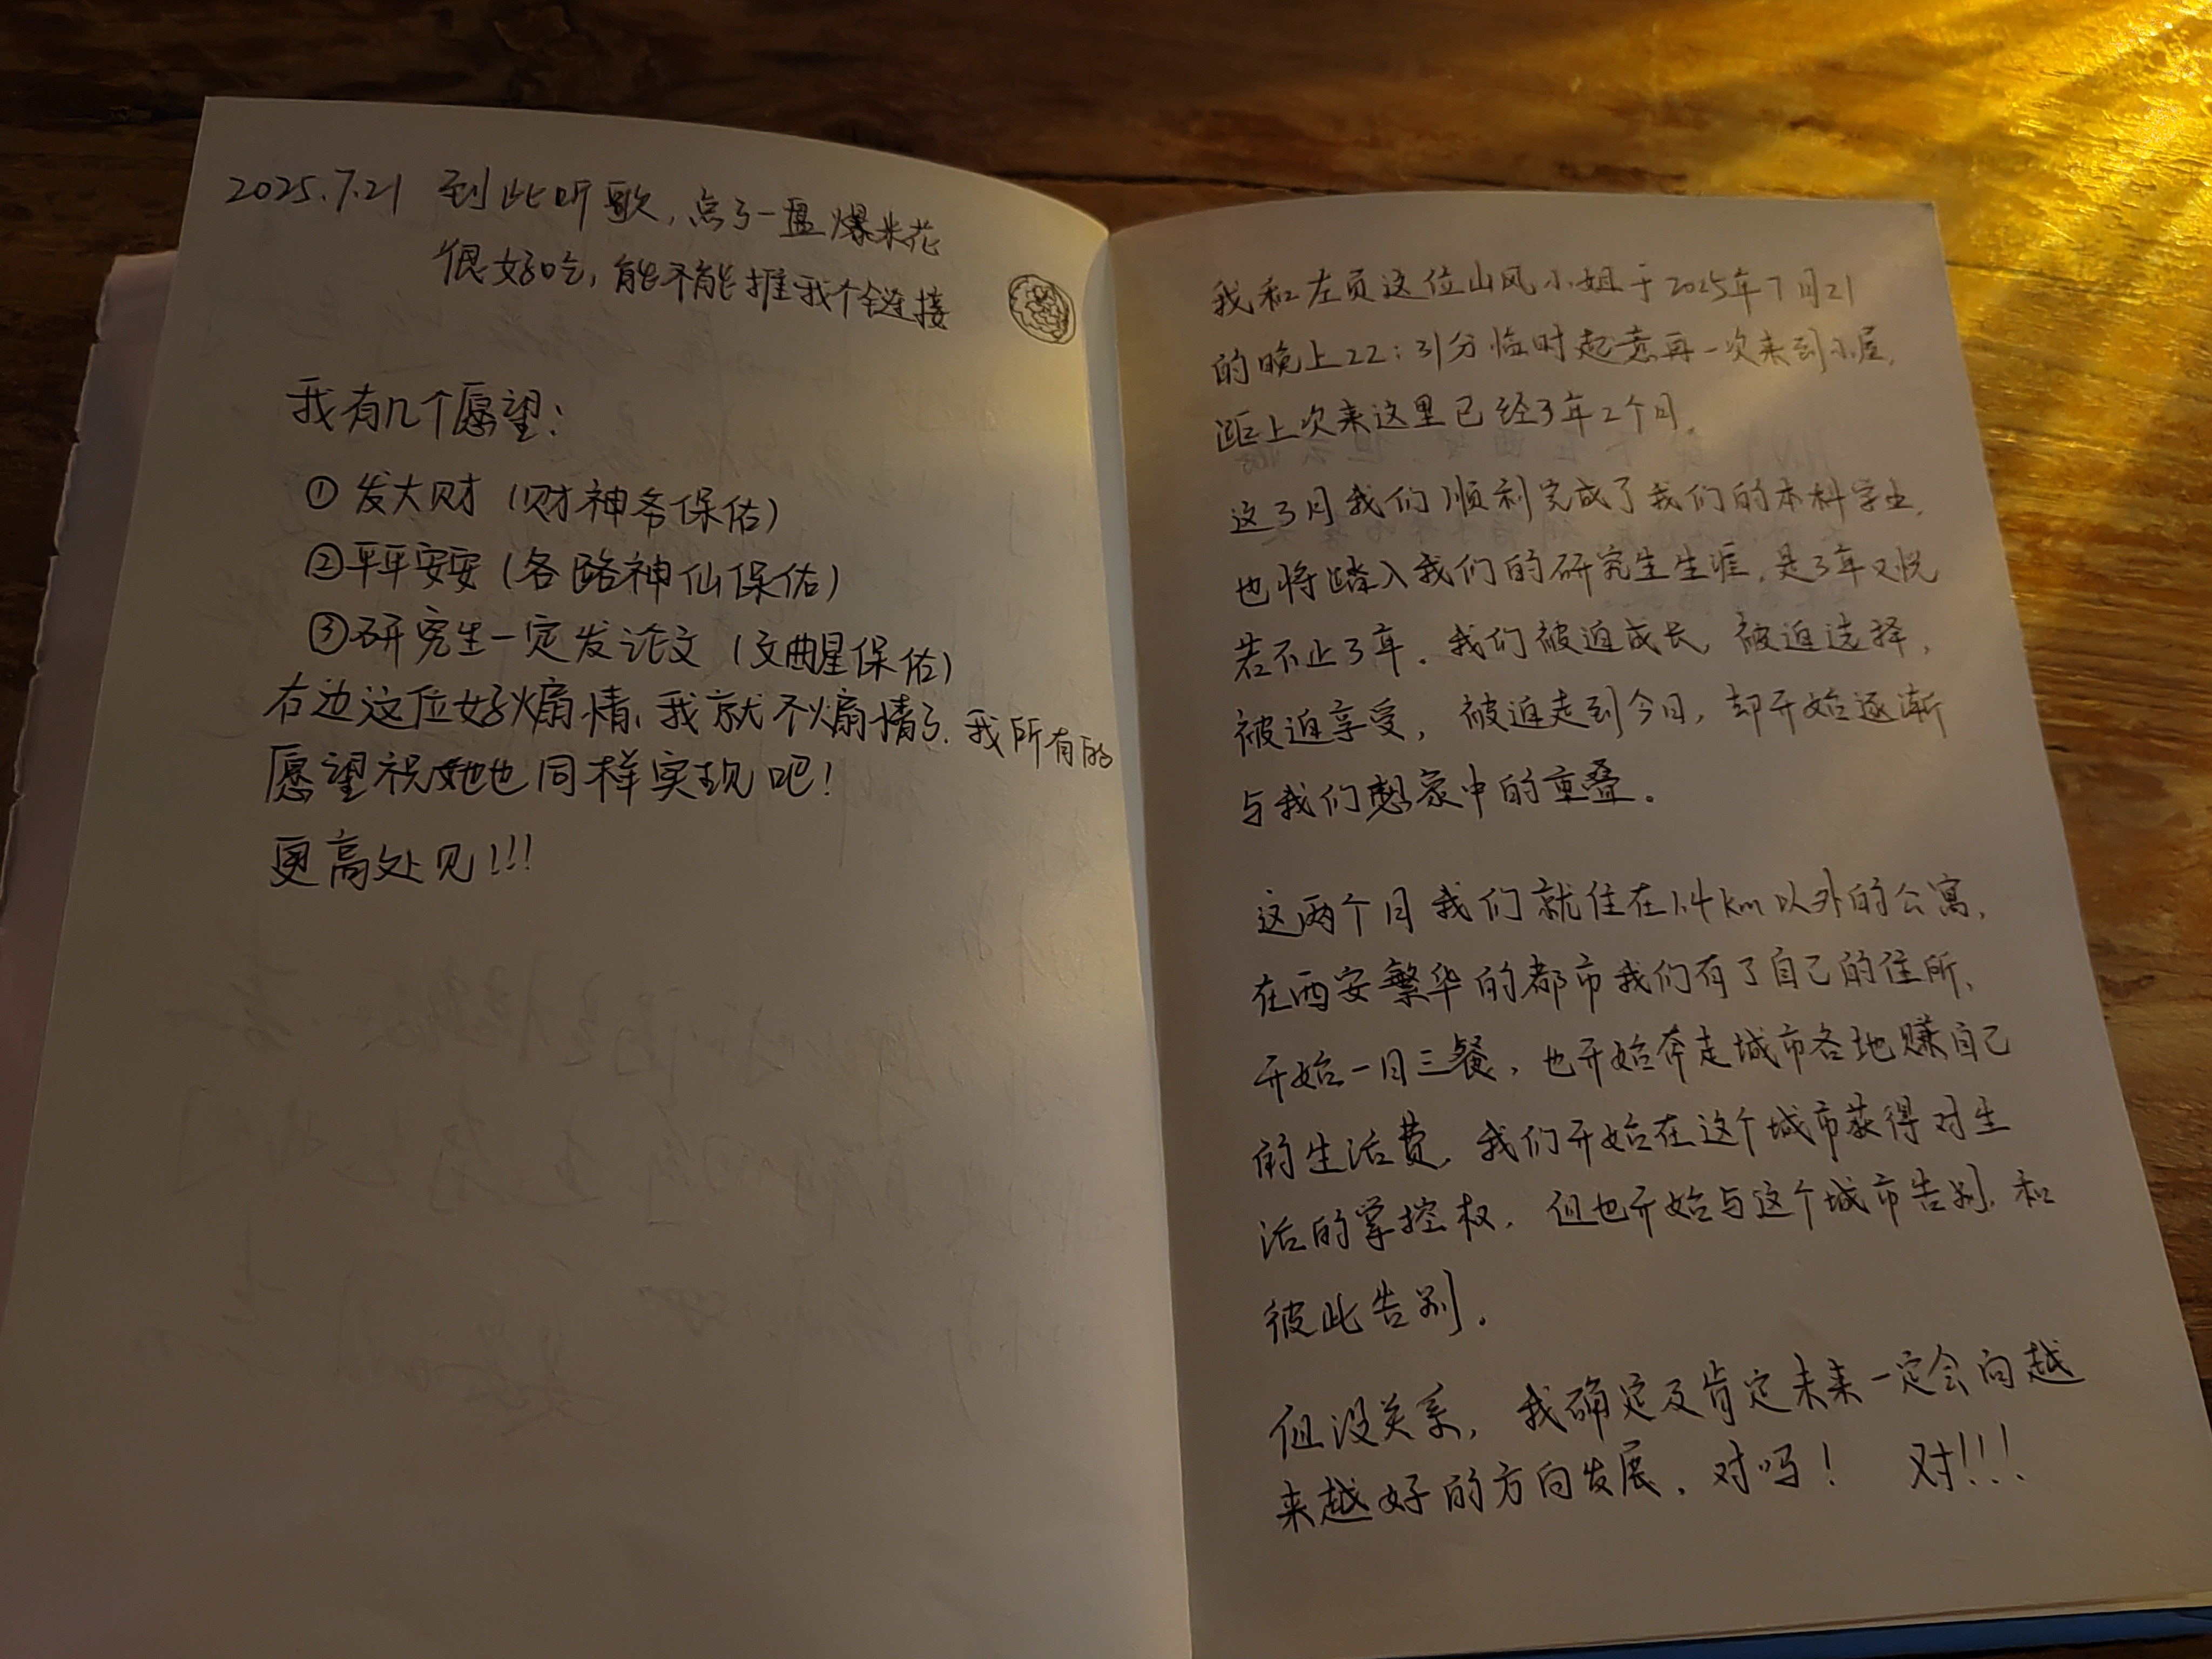 2025.7.21 到此听歌,点了一盘爆米花
很好吃,能不能推我个链接
我有几个愿望:
①发大财(财神爷保佑)
②平平安安(各路神仙保佑)
③研究生一定发论文(文曲星保佑)
右边这位好煽情,我就不煽情了.我所有的
愿望祝她也同样实现吧!
更高处见!!!
我和左页这位山风小姐于2025年7月21
的晚上22:31分临时起意再一次来到小屋,
距上次来这里已经3年2个月.
这3月我们顺利完成了我们的本科学业,
也将踏入我们的研究生生涯,是3年又恍
若不止3年。我们被迫成长,被迫选择,
被迫享受,被迫走到今日,却开始逐渐
与我们想象中的重叠。
这两个月我们就住在1.4km以外的公寓,
在西安繁华的都市我们有了自己的住所,
开始一日三餐,也开始奔走城市各地赚自己
的生活费,我们开始在这个城市获得对生
活的掌控权,但也开始与这个城市告别,和
彼此告别。
但没关系,我确定及肯定未来一定会向越
来越好的方向发展,对吗! 对!!!